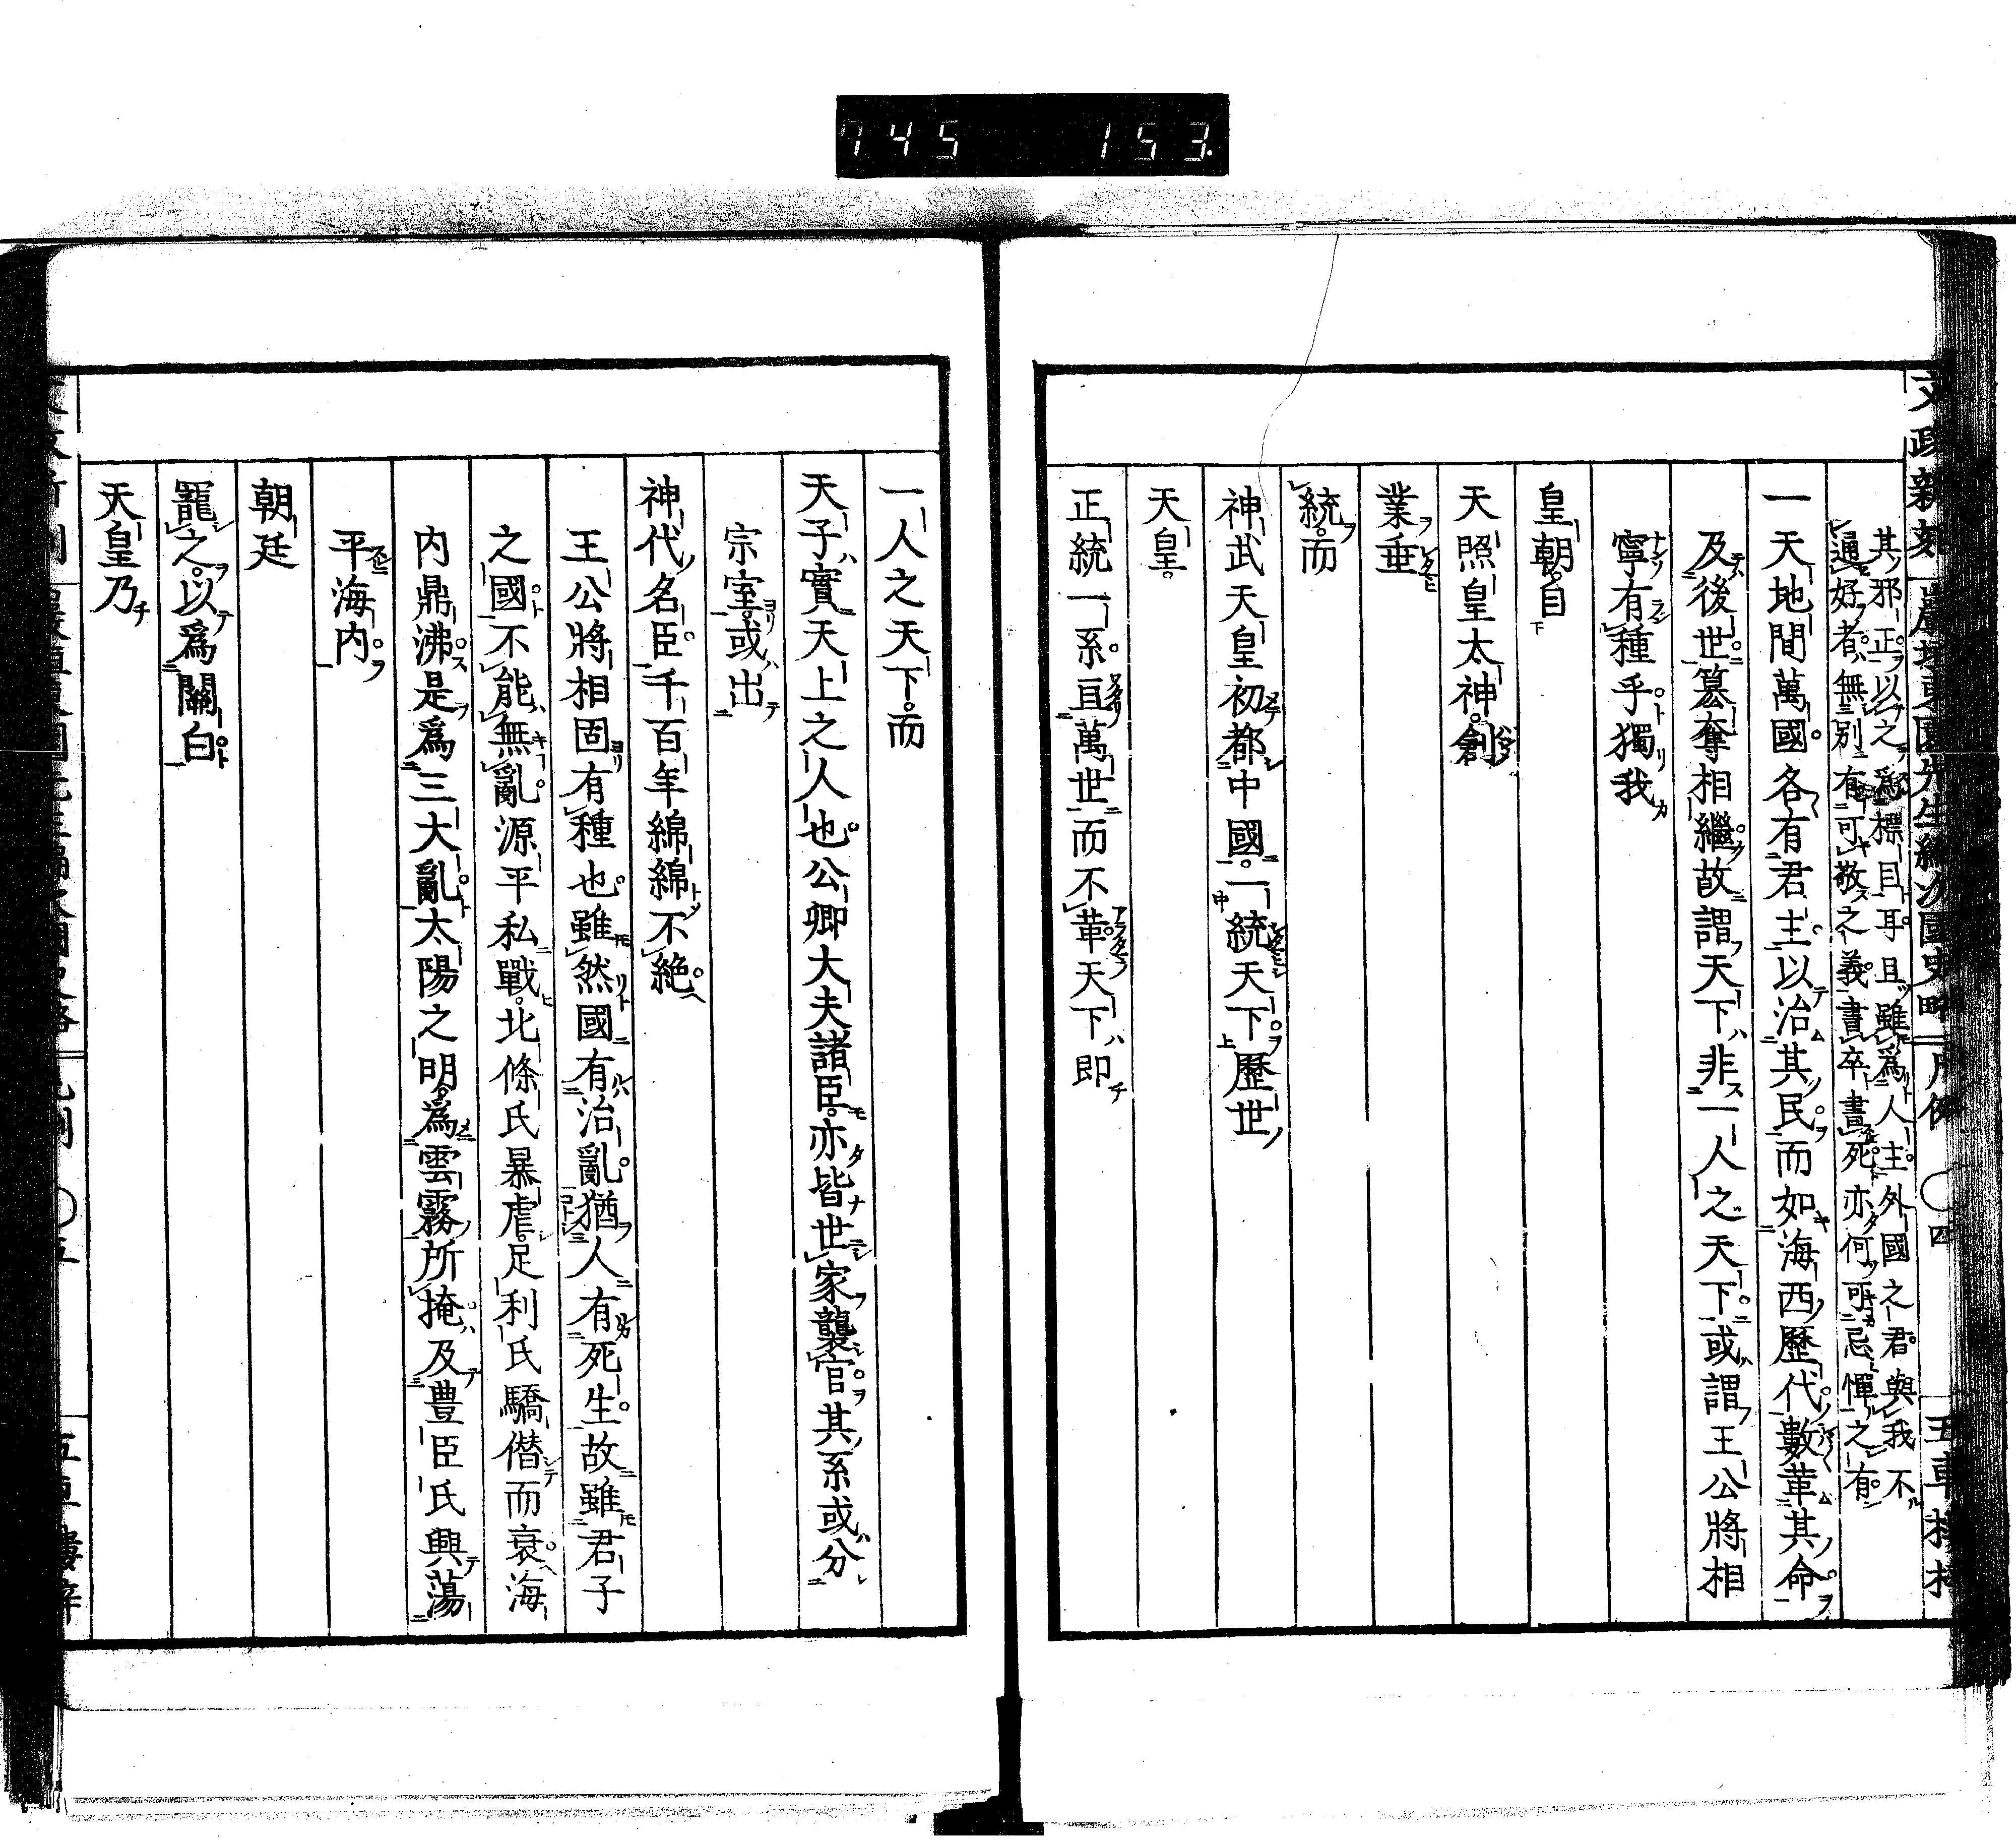 745 153.
文政新刻
巖垣東園先生編次國史略
凡例
四
五車樓梓
其邪正以之爲標目耳且雖爲人主外國之君與我不
通好者無別有可敬之義書卒書死亦何可忌憚之有
一天地間萬國各有君主以治其民而如海西歷代數革其命
及後世簒奪相繼故謂天下非一人之天下或謂王公將相
寧有種乎獨我
皇朝自
天照皇太神創
業垂
統而
神武天皇初都中國一統天下歷世
天皇
正統一系亘萬世而不革天下即
一人之天下而
天子實天上之人也公卿大夫諸臣亦皆世家襲官其系或分
宗室或出
神代名臣千百年綿綿不絶
王公將相固有種也雖然國有治亂猶人有死生故雖君子
之國不能無亂源平私戰北條氏暴虐足利氏驕僭而衰海
内鼎沸是爲三大亂太陽之明爲雲霧所掩及豊臣氏興蕩
平海内
朝廷
寵之以爲關白
天皇乃
五
五車樓梓